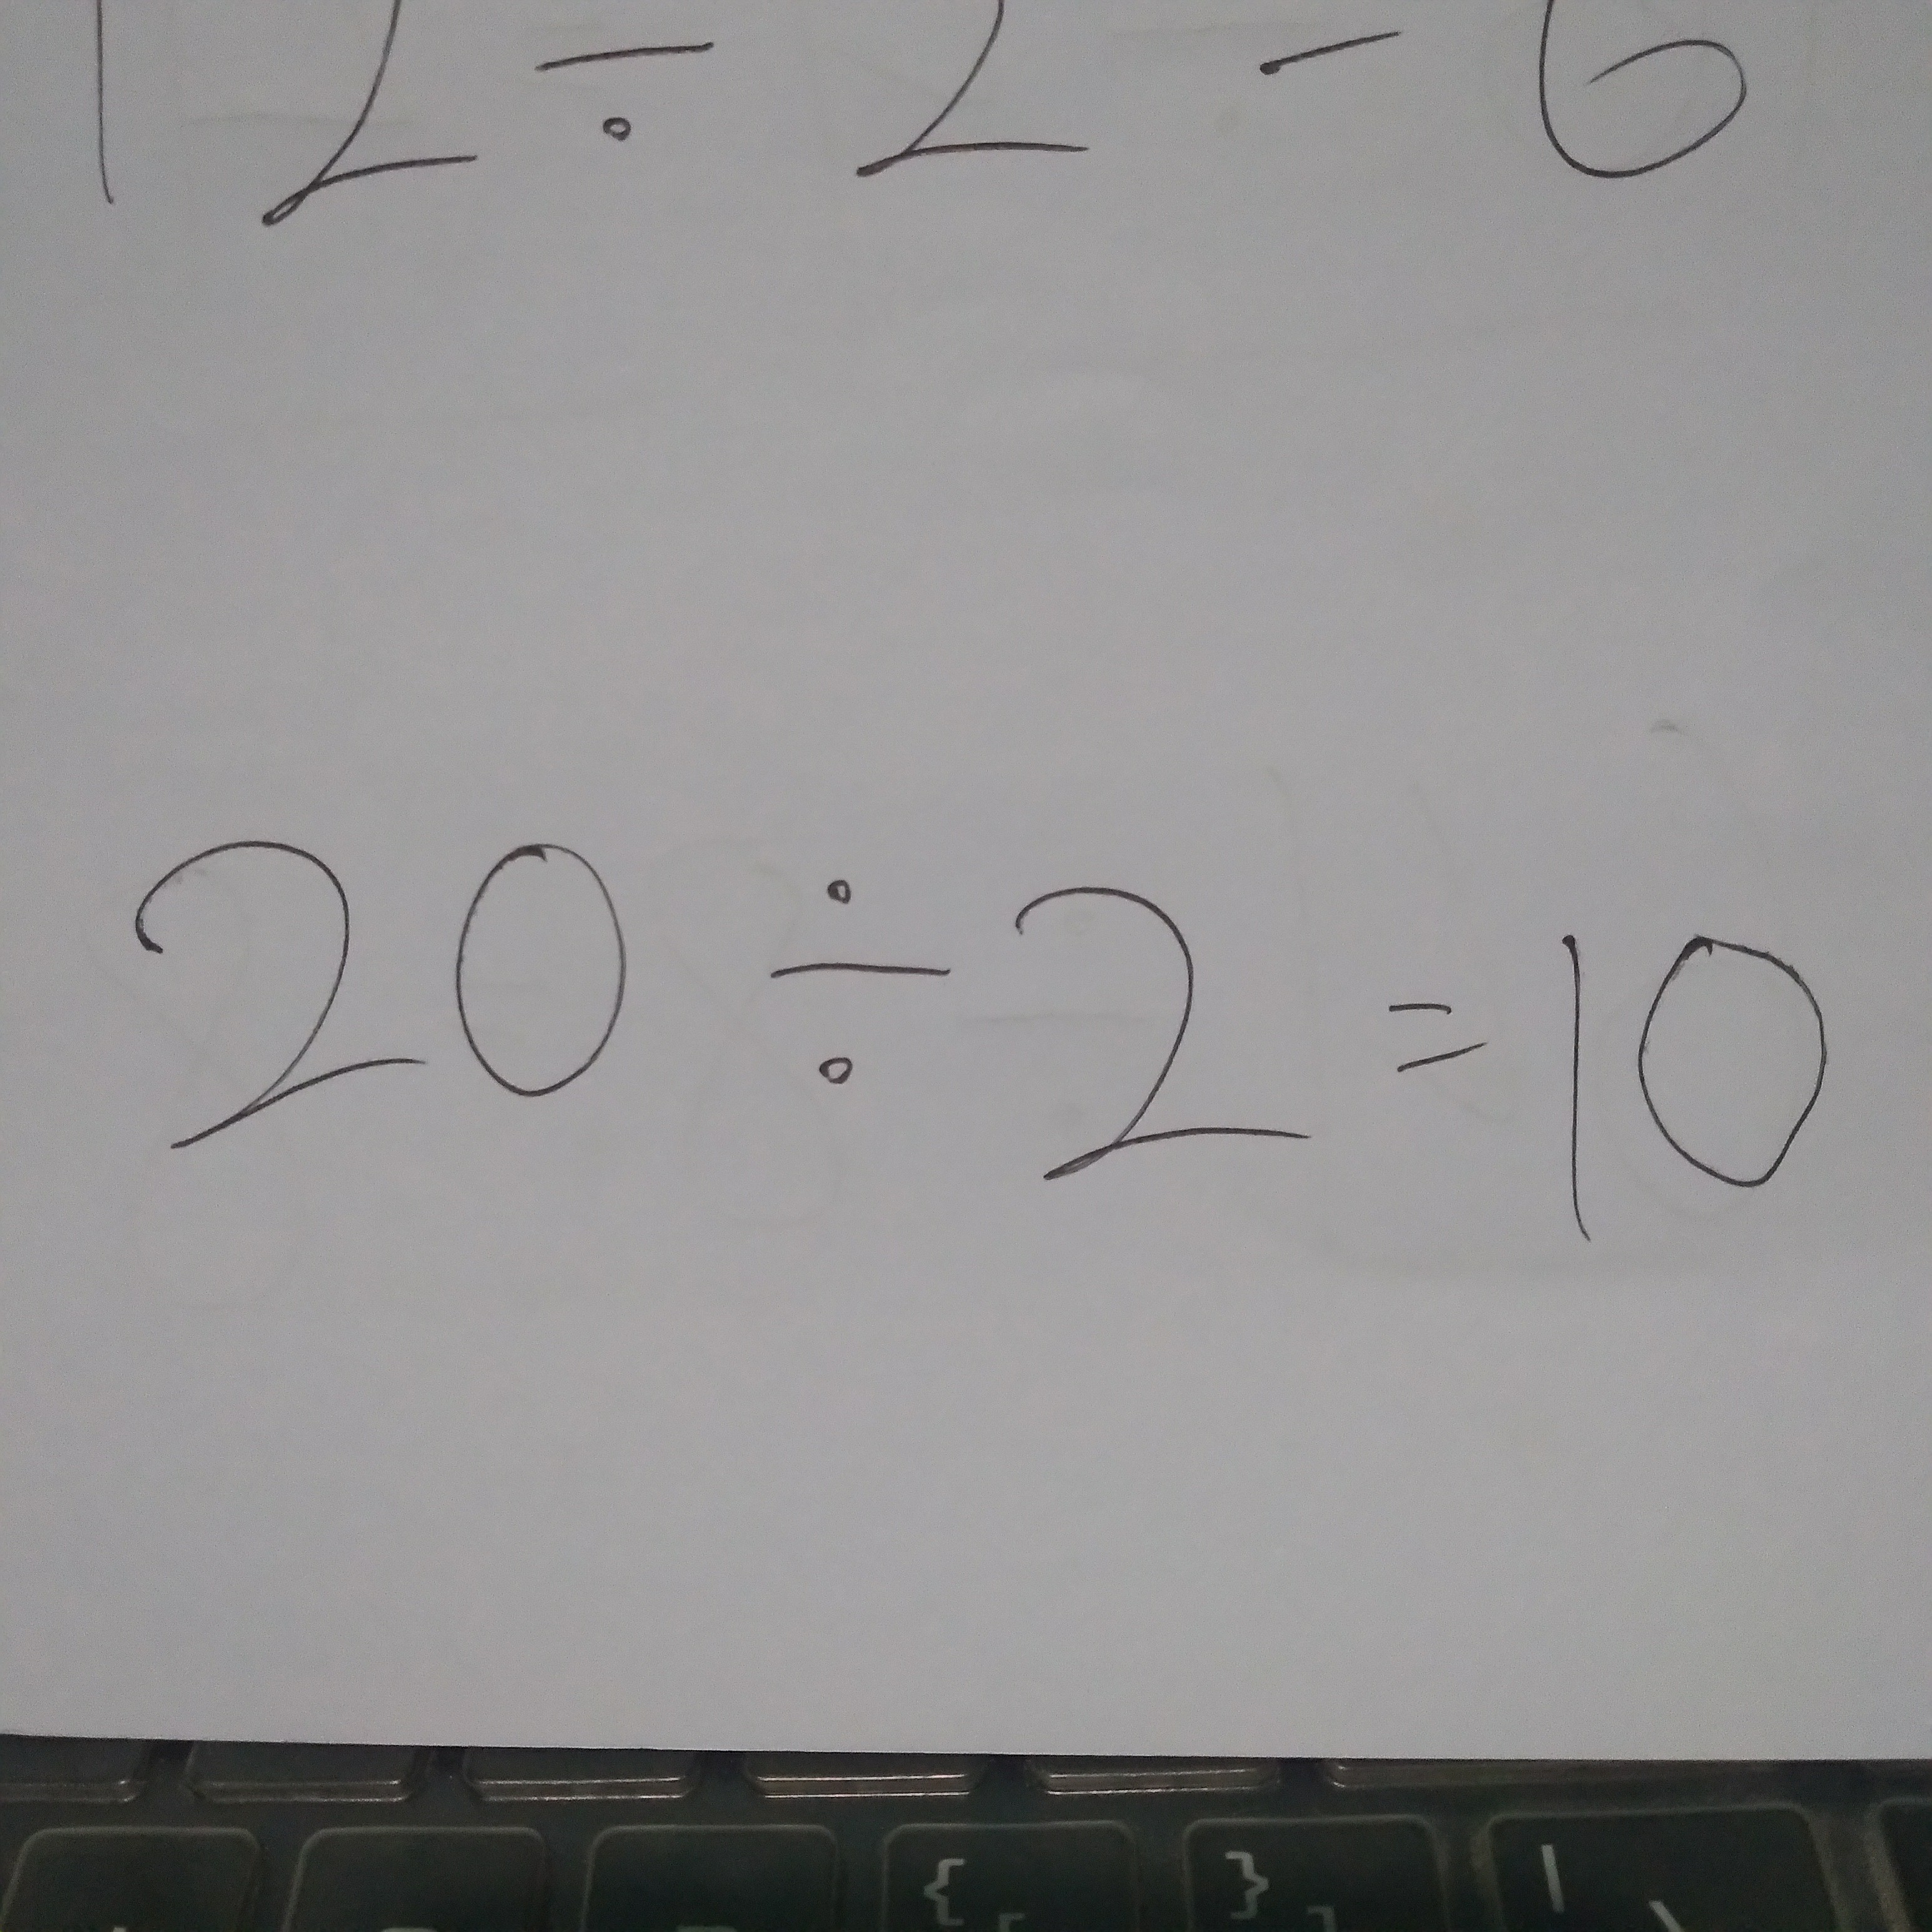 12 ÷ 2 = 6
20 ÷ 2 = 10
{ [ } ] | \